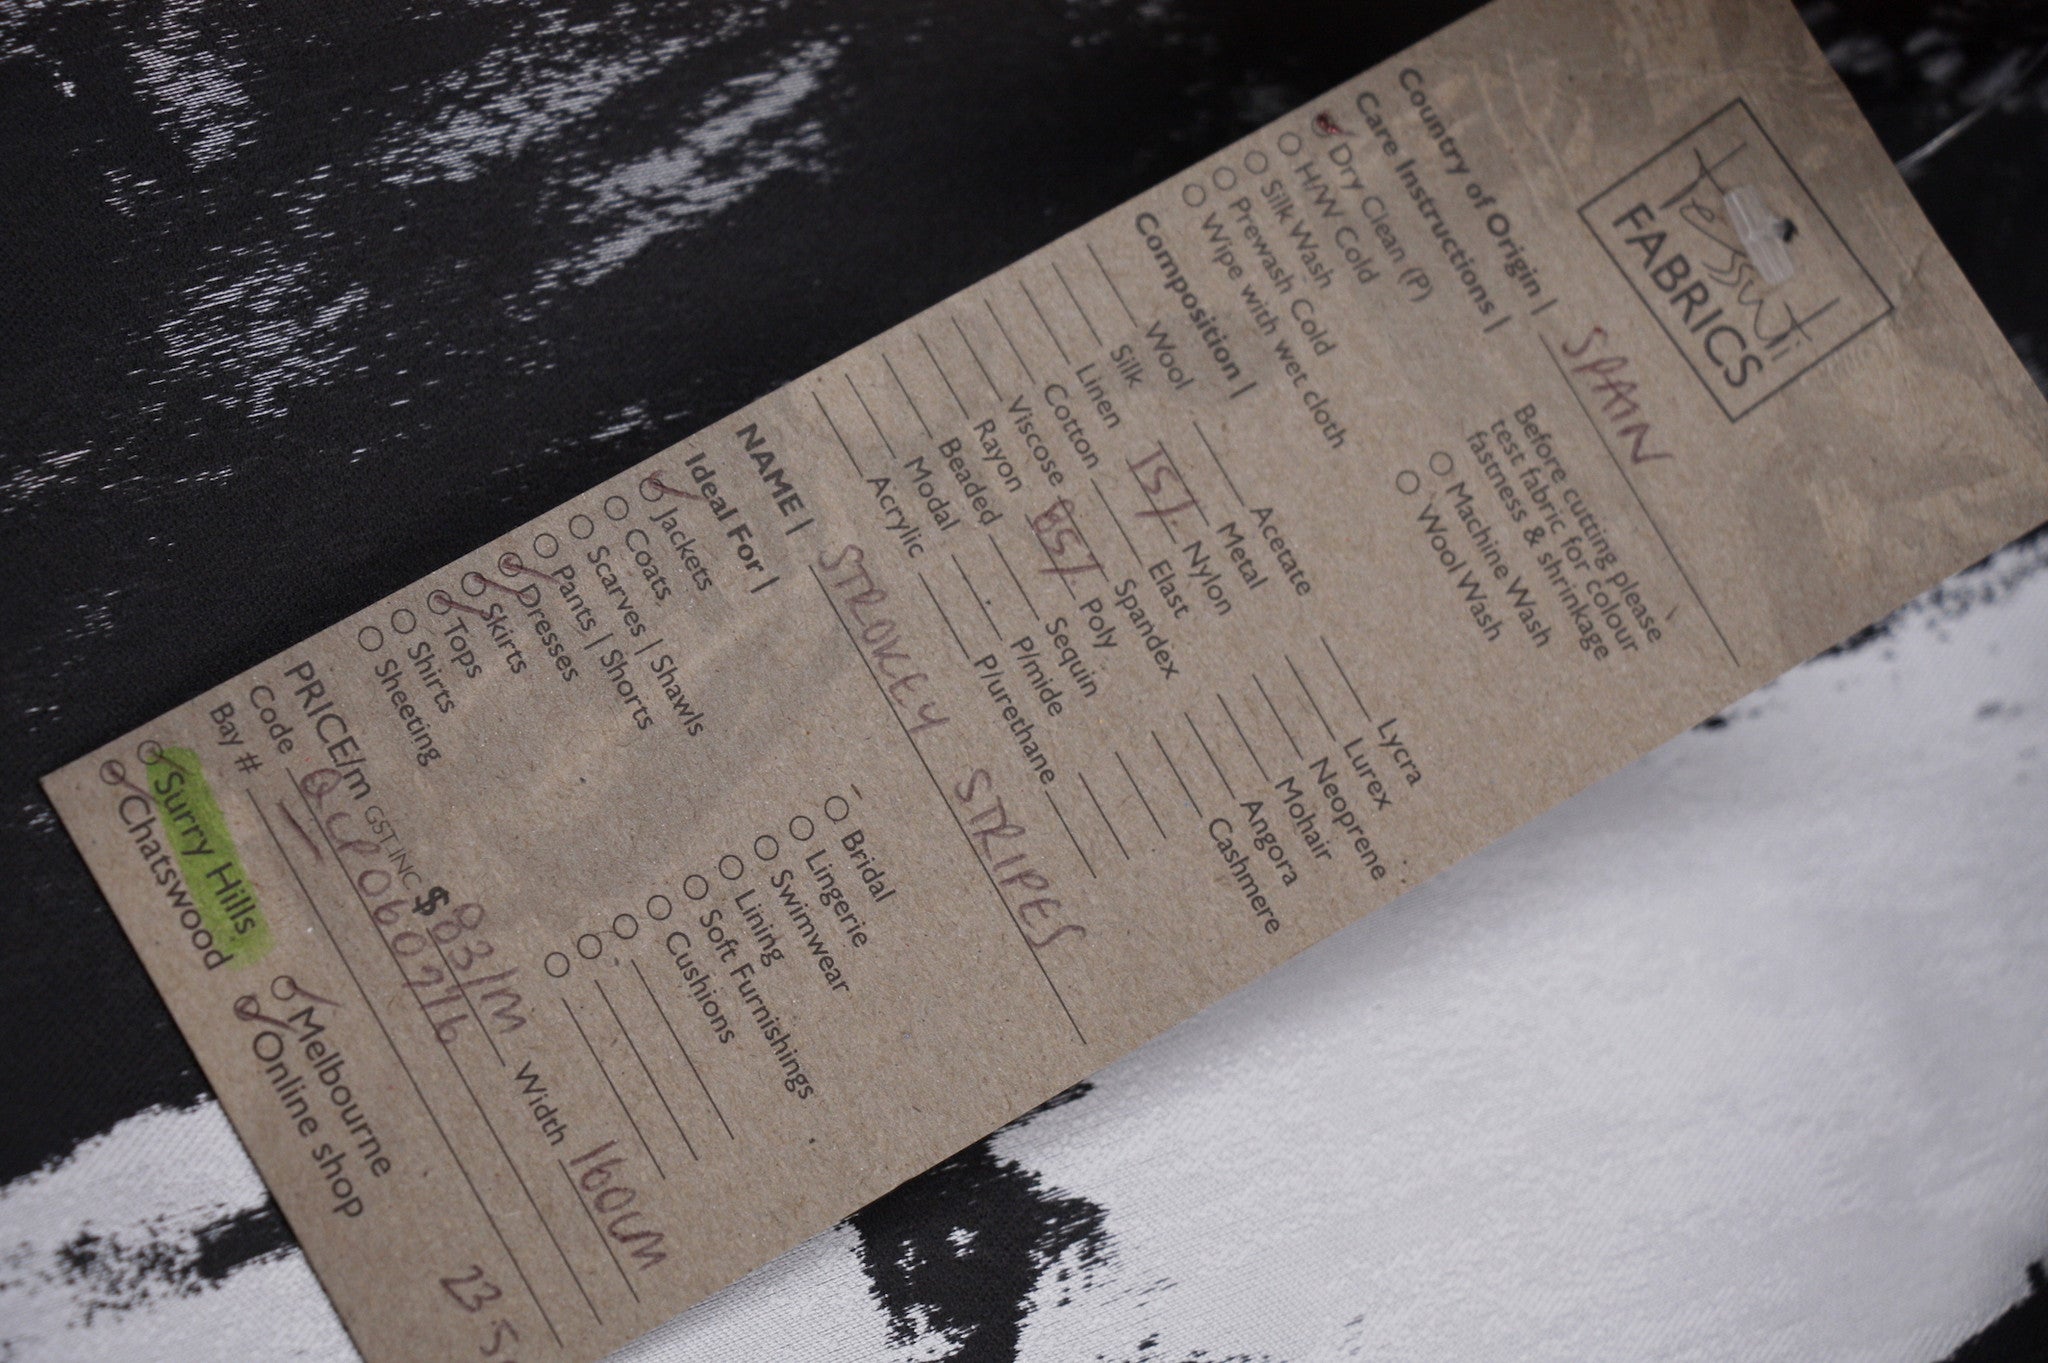 Tessuti
FABRICS
Country of Origin | SPAIN
Care Instructions |
Before cutting please
test fabric for colour
fastness & shrinkage
Dry Clean (P)
H/W Cold
Silk Wash
Prewash Cold
Wipe with wet cloth
Machine Wash
Wool Wash
Composition |
Wool Acetate Lycra
Silk Metal Lurex
Linen 15% Nylon Neoprene
Cotton Elast Mohair
Viscose Spandex Angora
Rayon 85% Poly Cashmere
Beaded Sequin
Modal P/mide
Acrylic P/urethane
NAME | STROKEY STRIPES
Ideal For |
Jackets Bridal
Coats Lingerie
Scarves | Shawls Swimwear
Pants | Shorts Lining
Dresses Soft Furnishings
Skirts Cushions
Tops
Shirts
Sheeting
PRICE/m GST INC $83/M Width 160cm
Code QLP060776
Bay #
Surry Hills Melbourne
Chatswood Online shop
23.5